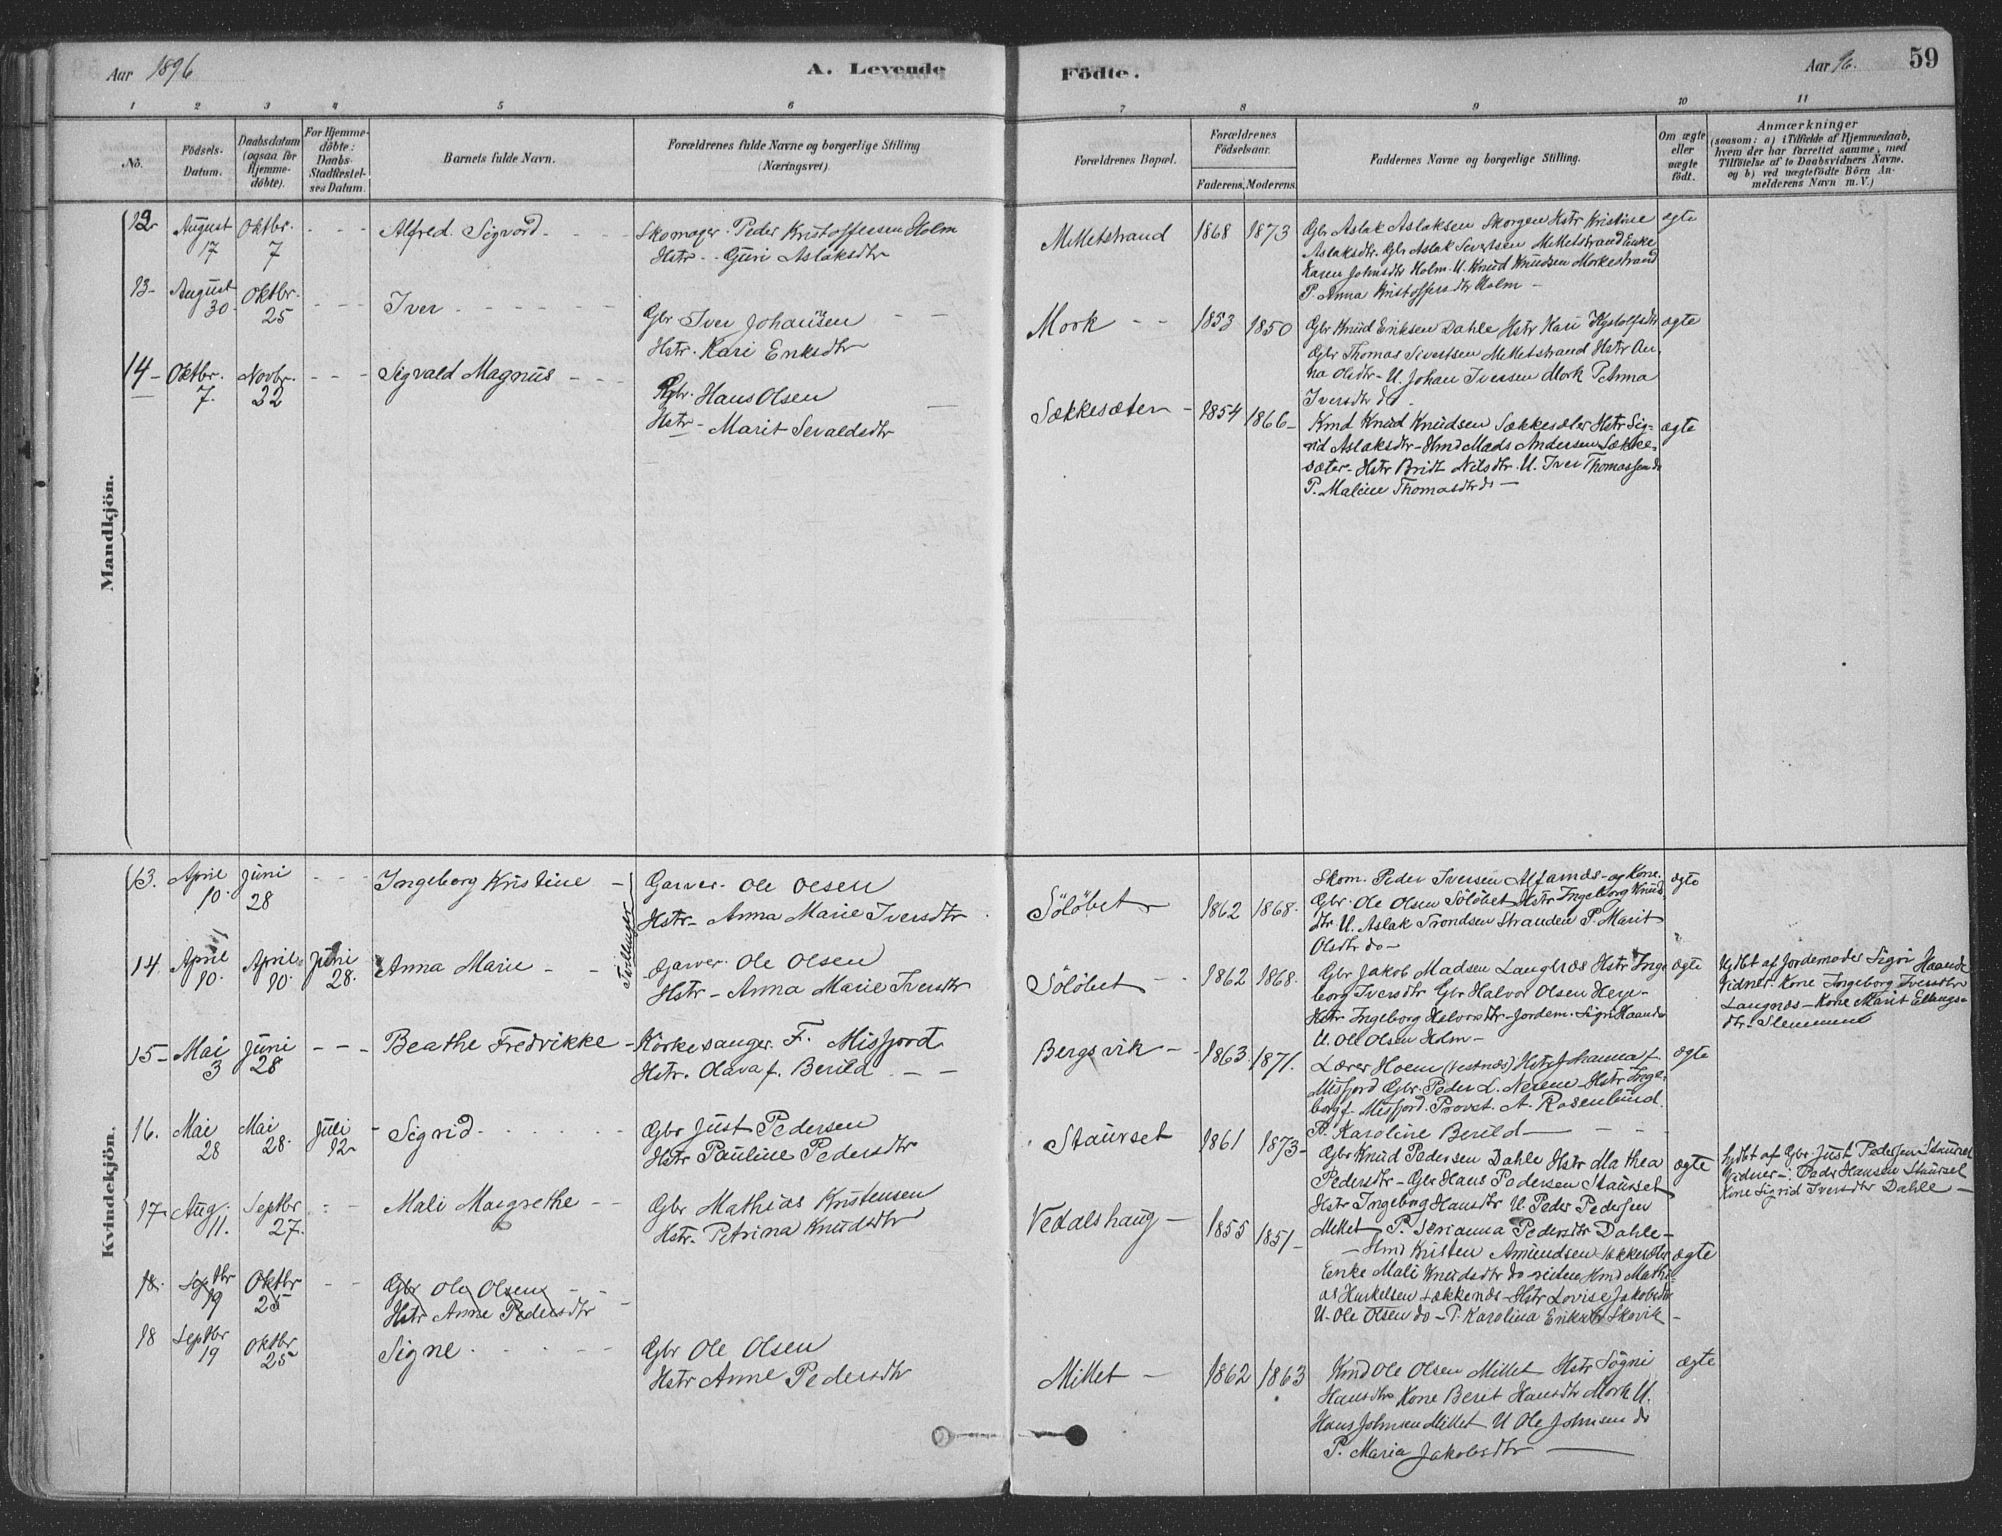 Aar 1896
A. Levende
Födte.
Aar 96.
59
1 2 3 4 5 6 7 8 9 10 11
No.
Födsels-Datum.
Daabsdatum (ogsaa for Hjemme-döbte).
For Hjemme-döbte: Daabs-Stadfæstel-ses Datum.
Barnets fulde Navn.
Forældrenes fulde Navne og borgerlige Stilling
(Næringsvei)
Forældrenes Bopæl.
Forældrenes Födselsaar.
Faderens. Moderens.
Faddernes Navne og borgerlige Stilling.
Om ægte eller uægte födt.
Anmærkninger
(saasom: a) i Tilfælde af Hjemmedaab,
hvem der har forrettet samme, med
Tilföielse af to Daabsvidners Navne.
og b) ved uægtefödte Börn An-
melderens Navn m. V.)
Mandkjön.
12 August 17 Oktbr. 7 - - - Alfred Sigvard
Skomager Peder Kristoffersen Holm
Hstr. Guri Aslaksdtr
Melletstrand 1868 1873
Gbr Aslak Aslaksen Skorgen Hstr Kristine
Aslaksdtr. Gbr Aslak Sivertsen Melletstrand Enke
Karen Johnsdtr Holm. U. Knud Knudsen Morkestrand
P. Anna Kristoffersdtr Holm -
ægte
13- August 30 Oktbr. 25 - - - Iver
Gbr Iver Johansen
Hstr. Kari Eriksdtr
Mork - - 1853 1850
Gbr Knud Eriksen Dahle Hstr Kari
Gbr Thomas Sivertsen Melletstrand Hstr An-
na Olsdtr - U. Johan Iversen Mork P. Anna
Iversdtr do -
ægte
14- Oktbr. 7. Novbr. 22 - - - Sigvald Magnus
Gbr. Hans Olsen
Hstr - Marit Sevaldsdtr
Sækkesæter - 1854 1866-
Kmd Knud Knudsen Sækkesæter Hstr Sig-
rid Aslaksdtr - Hmd Mads Andersen Sække-
sæter - Hstr Brit Nilsdtr. U. Iver Thomassen do
P. Maline Thomasdtr do -
ægte
Kvindekjön.
13. April 10. Juni 28 - - - Ingeborg Kristine -
Tvillinger
Garver. Ole Olsen
Hstr - Anna Marie Iversdtr
Sölöbet - 1862 1868.
Skom. Peder Iversen Alfarnæs - og Kone.
Gbr. Ole Olsen Sölöbet Hstr Ingeborg Knud
dtr U. Aslak Trondsen Stranden P. Marit
Olsdtr do -
ægte
14. April 10. April 10. Juni 28. Anna Marie - -
Garver. Ole Olsen
Hstr - Anna Marie Iversdtr
Sölöbet - - 1862 1868.
Gbr Jakob Madsen Langnæs Hstr Inge
borg Iversdtr Gbr Halvor Olsen
Hstr Ingeborg Halvorsdtr - Jordem. Sigri Haande
U. Ole Olsen Holm -
ægte
Hjdbt af Jordemoder Sigri Haande
Vidner. Kone Ingeborg Iversdtr
Langnæs - Kone Marit Ellings-
dtr.
15- Mai 3 Juni 28 - - - Beathe Fredrikke -
Kirkesanger. F. Misfjord
Hstr. Olava f. Berild - -
Bergsvik - - 1863. 1871.
Lærer Hoem (Vestnæs) Hstr Johanna f.
Misfjord Gbr. Peder L. Hstr Inge-
borg f. Misfjord. Provst. A. Rosenlund.
P. Karoline Berild -
ægte
16. Mai 28 Mai 28. Juli 12 - Sigrid
Gbr Just Pedersen
Hstr Pauline Pedersdtr
Staurset 1861 1873-
Gbr Knud Pedersen Dahle Hstr Mathea
Pedersdtr - Gbr Hans Pedersen Staurset
Hstr Ingeborg Hansdtr U. Peder Pedersen
Mittet P. Serianna Pedersdtr Dahle -
ægte
Hjdbt af Gbr. Just Pedersen Staurset
Vidner -: Peder Hansen Staurset
Kone Sigrid Iversdtr Dahle -
17- Aug. 11. Septbr 27. - - Mali Margrethe - -
Gbr Mathias Kristensen
Hstr. Petrina Knudsdtr
Vedalshaug - 1855 1851-
- Hmd Kristen Amundsen Sækkesæter
Enke Mali Knudsdtr do Hmd Mathi-
as Sækkenæs - Hstr Lovise Jakobsdtr
U. Ole Olsen do - P. Karolina Eriksdtr Skovik -
ægte
18. Septbr 19 Oktbr 25 - - Gbr Ole Olsen - -
Hstr Anne Pedersdtr -
18 Septbr 19 Oktbr 25 Signe
Gbr Ole Olsen
Hstr Anne Pedersdtr
Mittet - 1862 1863
Kmd Ole Olsen Mittet Hstr Sögni
Hansdtr Kone Berit Hansdtr Mork U.
Hans Johnsen Mittet U Ole Johnsen do
P. Maria Jakobsdtr -
ægte